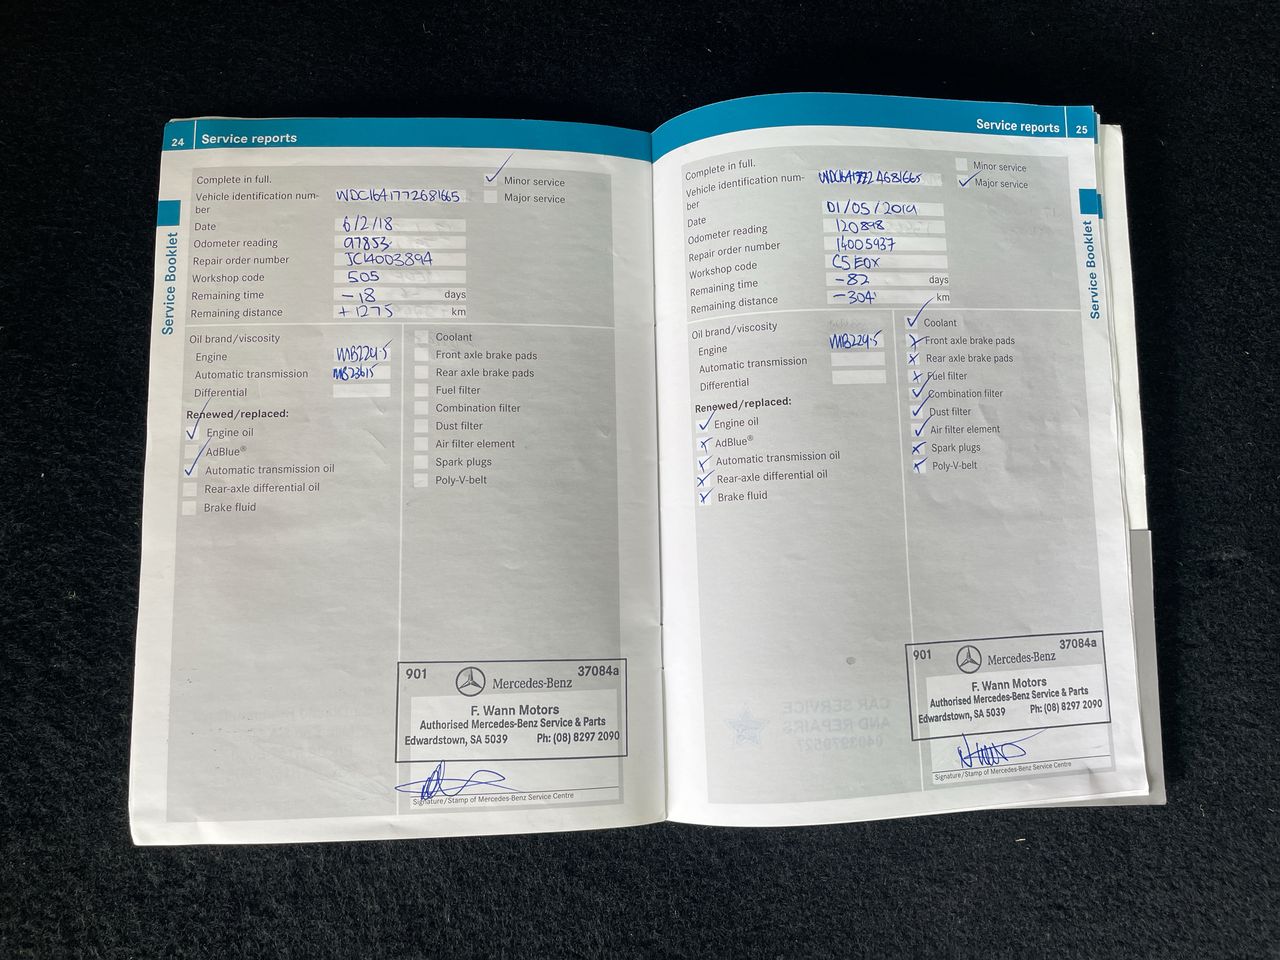 24 Service reports
Complete in full.
Minor service
Vehicle identification num-
ber
WDC1641772681665
Major service
Date 6/2/18
Odometer reading 97853
Repair order number JC14003894
Workshop code 505
Remaining time -18 days
Remaining distance +1275 km
Oil brand/viscosity
Engine MB229.5
Automatic transmission MB23615
Differential
Renewed/replaced:
Engine oil
AdBlue®
Automatic transmission oil
Rear-axle differential oil
Brake fluid
Coolant
Front axle brake pads
Rear axle brake pads
Fuel filter
Combination filter
Dust filter
Air filter element
Spark plugs
Poly-V-belt
901 Mercedes-Benz 37084a
F. Wann Motors
Authorised Mercedes-Benz Service & Parts
Edwardstown, SA 5039 Ph: (08) 8297 2090
Signature/Stamp of Mercedes-Benz Service Centre
Service Booklet
Service reports 25
Complete in full.
Minor service
Vehicle identification num-
ber
Major service
Date 01/05/2019
Odometer reading 120898
Repair order number 14005937
Workshop code CSEOX
Remaining time -82 days
Remaining distance -304 km
Oil brand/viscosity
Engine MB229.5
Automatic transmission
Differential
Renewed/replaced:
Engine oil
AdBlue®
Automatic transmission oil
Rear-axle differential oil
Brake fluid
Coolant
Front axle brake pads
Rear axle brake pads
Fuel filter
Combination filter
Dust filter
Air filter element
Spark plugs
Poly-V-belt
901 Mercedes-Benz 37084a
F. Wann Motors
Authorised Mercedes-Benz Service & Parts
Edwardstown, SA 5039 Ph: (08) 8297 2090
Signature/Stamp of Mercedes-Benz Service Centre
Service Booklet